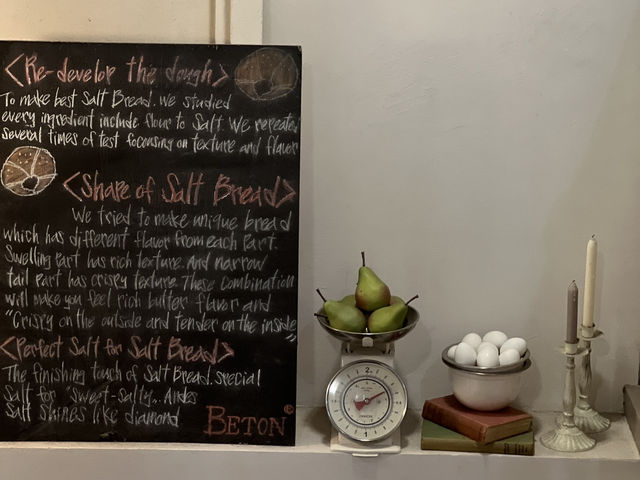 <Re-develop the dough>
To make best Salt Bread. We studied
every ingredient include flour to Salt. We repeated
several times of test focousing on texture and flavor
<Share of Salt Bread>
We tried to make unique bread
which has different flavor from each Part.
Swelling Part has rich texture. And narrow
tail Part has crispy texture. These Combination
will make you feel rich butter flavor and
"Crispy on the outside and tender on the inside"
<Perfect Salt for Salt Bread>
The finishing touch of Salt Bread. Special
Salt for "Sweet-Salty". Andes
Salt shines like diamond
BETON®